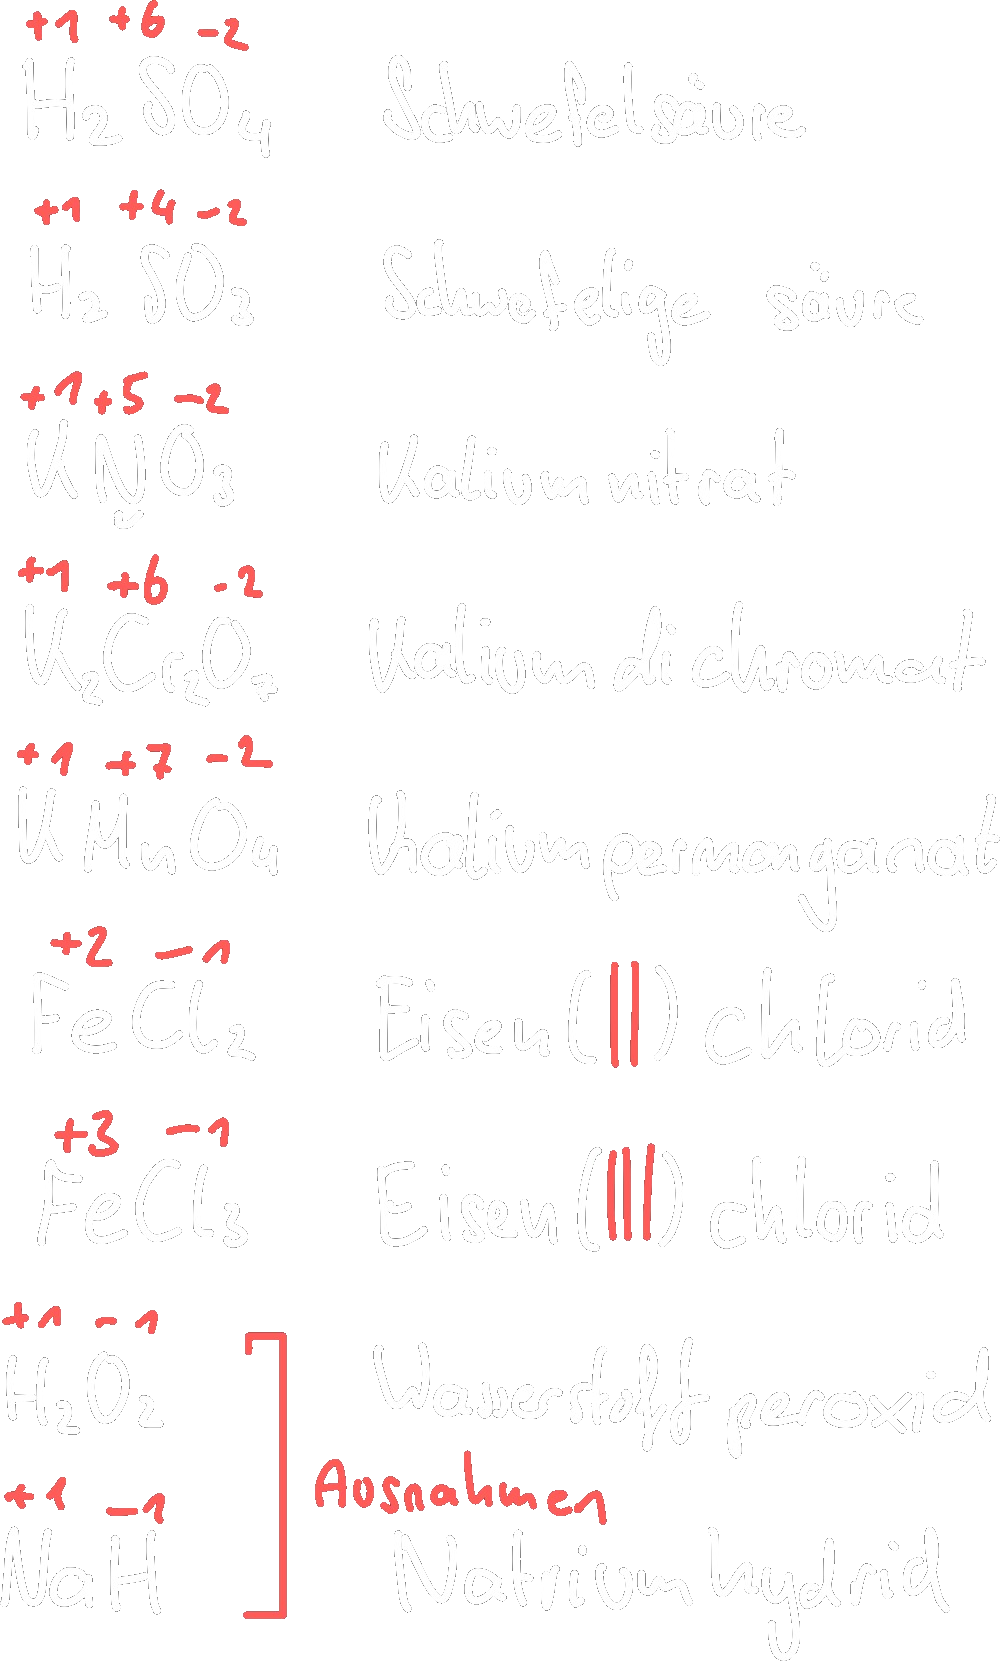 +1 +6 -2
H₂SO₄ Schwefelsäure
+1 +4 -2
H₂SO₃ Schwefelige säure
+1 +5 -2
KNO₃ Kaliumnitrat
+1 +6 -2
K₂Cr₂O₇ Kaliumdichromat
+1 +7 -2
KMnO₄ Kaliumpermanganat
+2 -1
FeCl₂ Eisen(II)chlorid
+3 -1
FeCl₃ Eisen(III)chlorid
+1 -1
H₂O₂ Wasserstoffperoxid
Ausnahmen
+1 -1
NaH Natriumhydrid